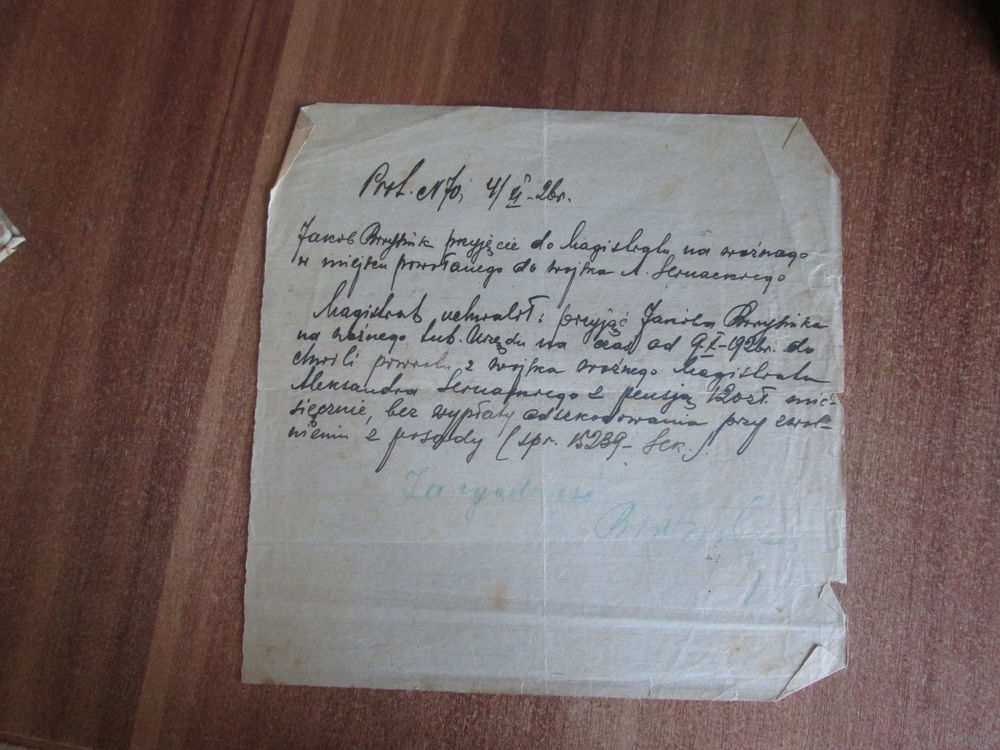 Prot. N 70, 4/XI-26r.
Jakób przyjęcie do Magistratu na woźnego
w miejscu powołanego do wojska A.
Magistrat uchwalił: przyjąć Jakóba
na woźnego tub. Urzędu na czas od 9/XI-1926r. do
chwili powrotu z wojska woźnego Magistratu
Aleksandra z pensją 120 zł. mie-
sięcznie, bez wypłaty odszkodowania przy zwol-
nieniu z posady (spr. 15239- Sek.)
Za zgodność